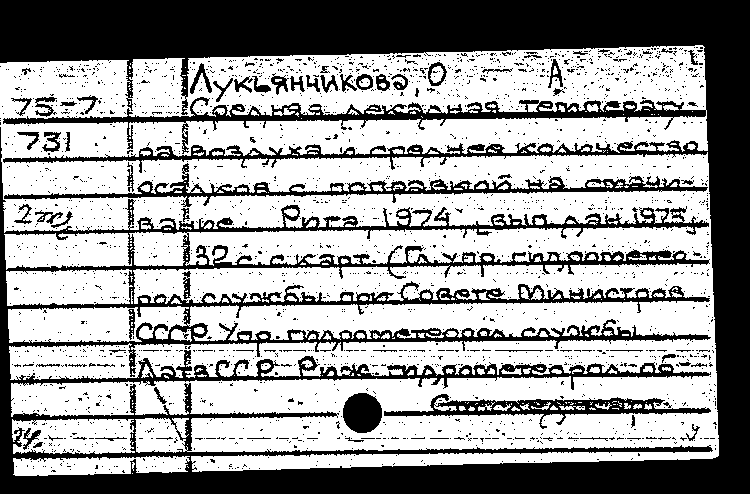 Лукьянчикова, О А
75-7 Средняя декадная температу-
731 ра воздуха и среднее количество
осадков с поправкой на смачи-
2 экз вание. Рига, 1974, [вып. дан. 1975].
32 с. с карт. (Гл. упр. гидрометео-
рол. службы при Совете Министров
СССР. Упр. гидрометеорол. службы
Латв ССР. Риж. гидрометеорол. об-
См. след. карт.